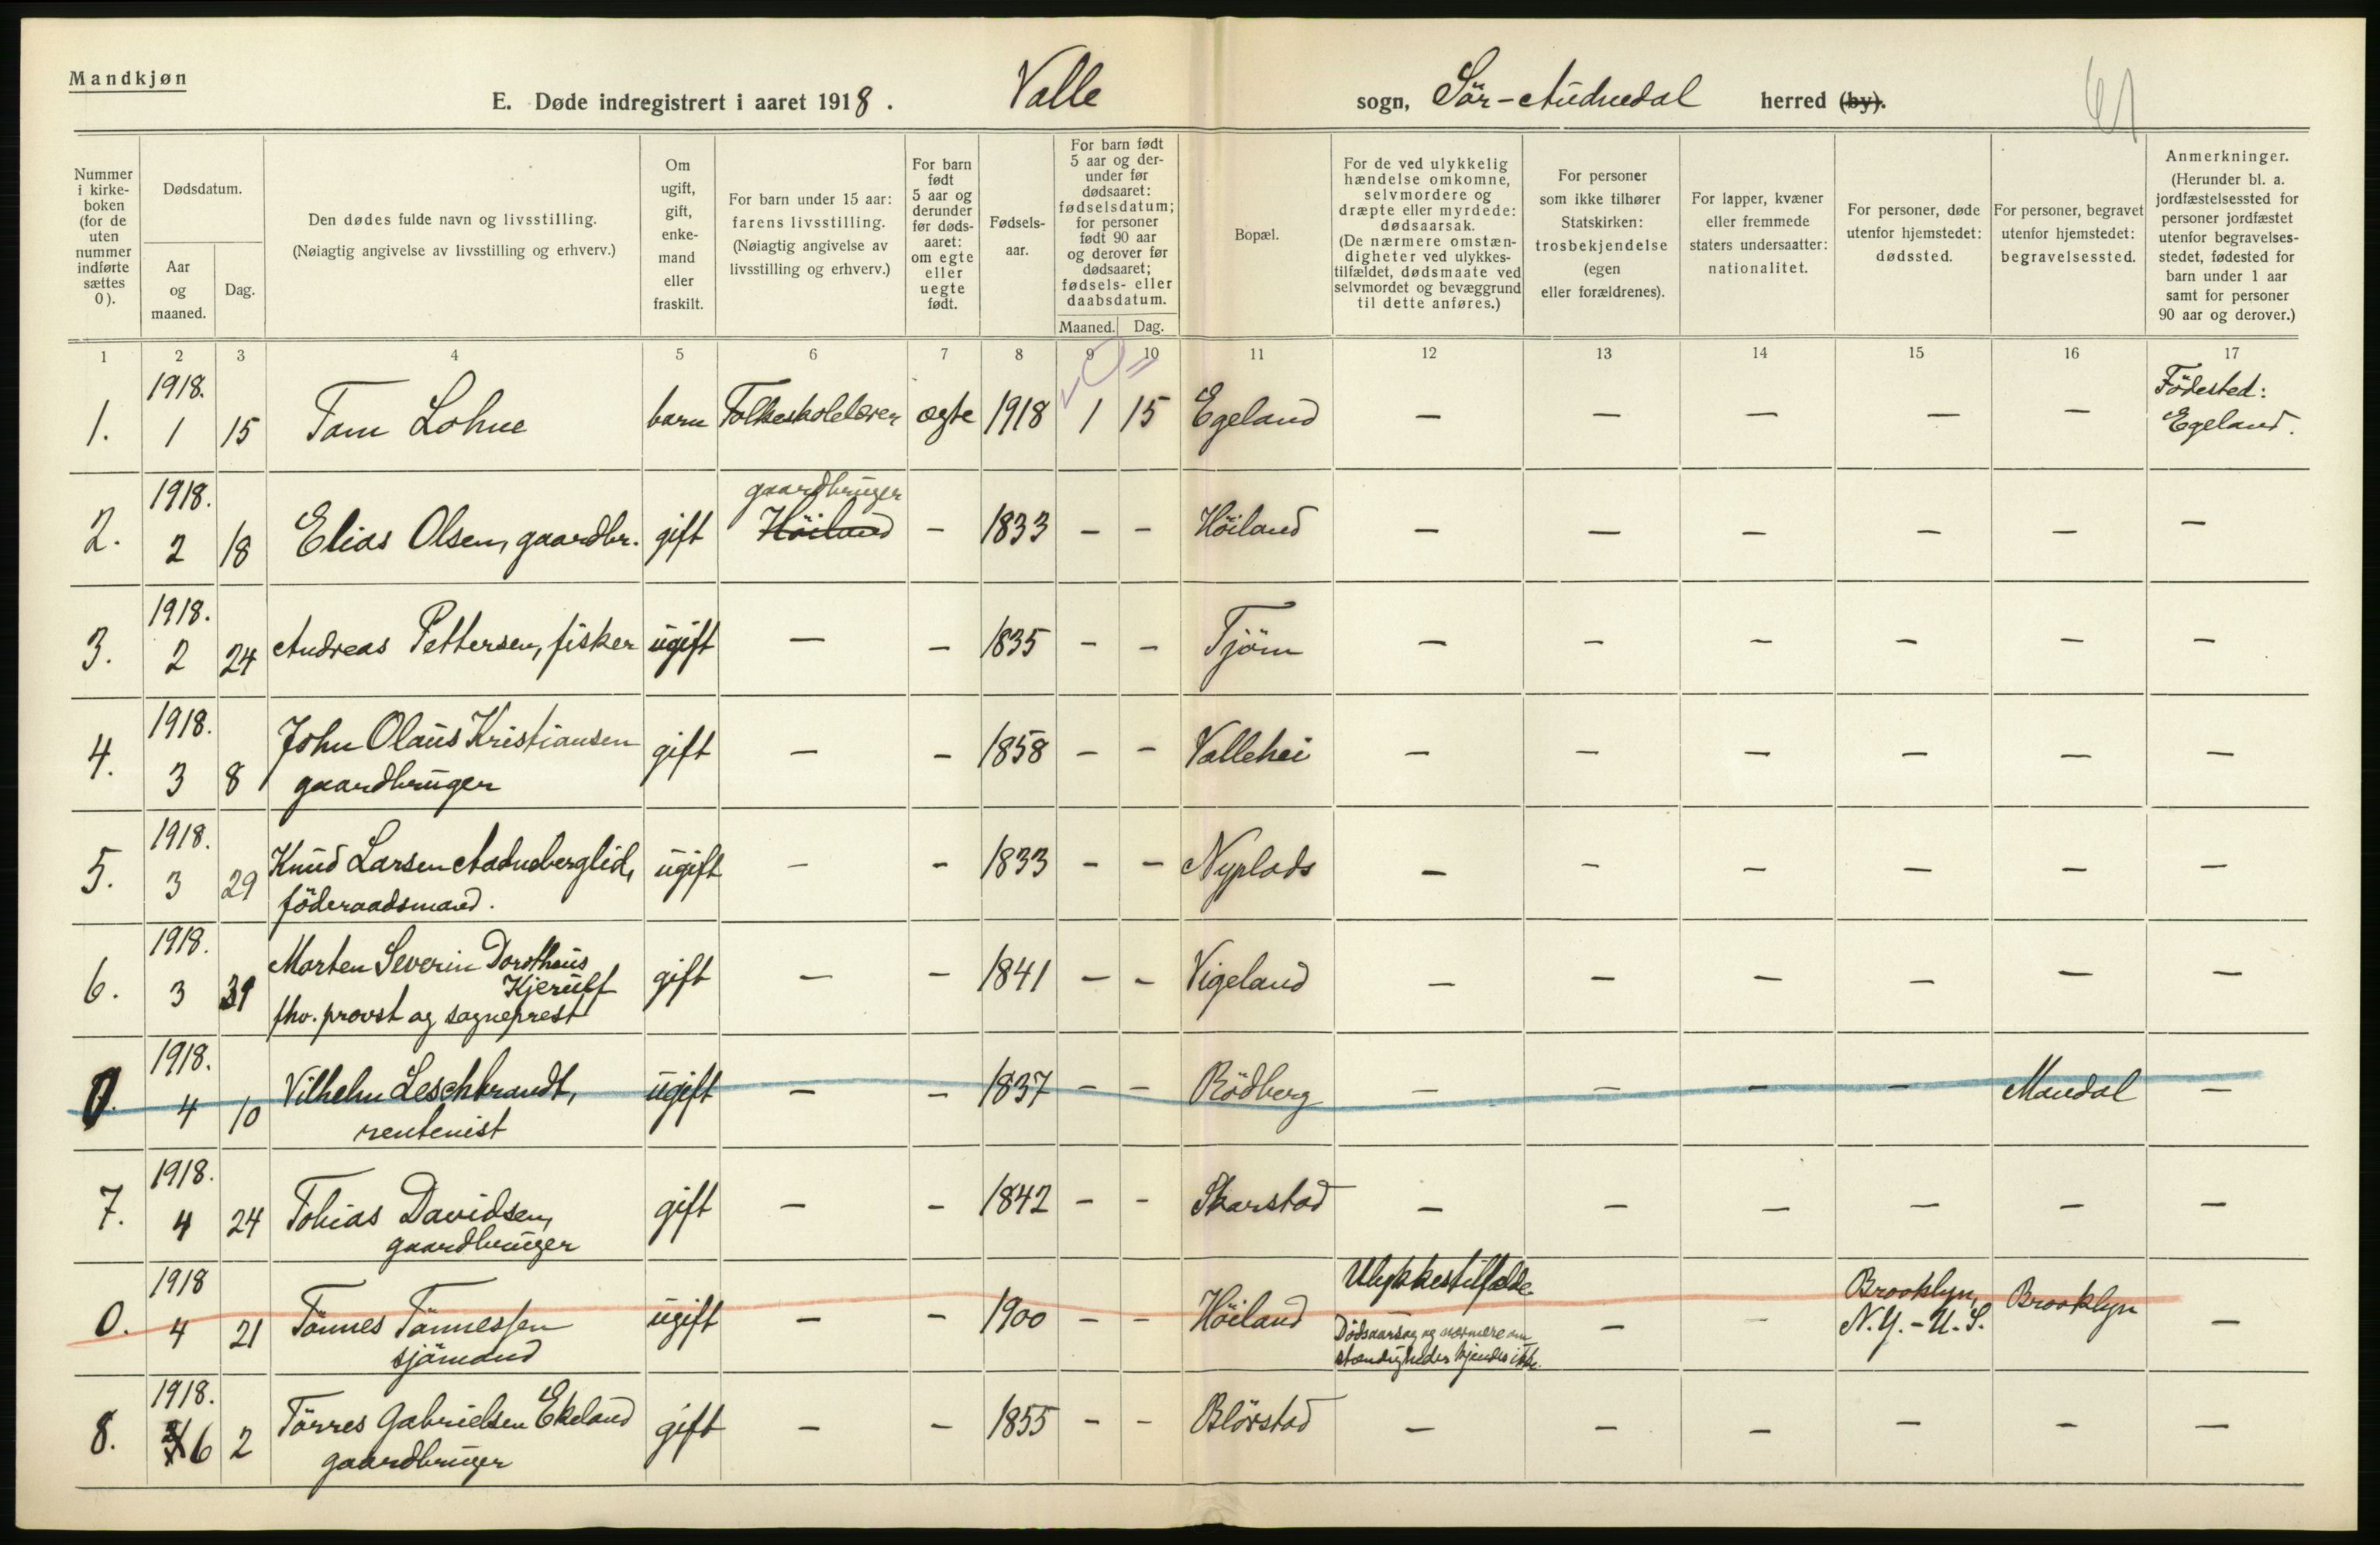 Mandkjøn
E. Døde indregistrert i aaret 1918. Valle sogn, Sör-Audnedal herred (by).
61
Nummer i kirke-boken (for de uten nummer indførte sættes 0).
Dødsdatum.
Aar og maaned.
Dag.
Den dødes fulde navn og livsstilling.
(Nøiagtig angivelse av livsstilling og erhverv.)
Om ugift, gift, enke-mand eller fraskilt.
For barn under 15 aar: farens livsstilling.
(Nøiagtig angivelse av livsstilling og erhverv.)
For barn født 5 aar og derunder før døds-aaret: om egte eller uegte født.
Fødsels-aar.
For barn født 5 aar og der-under før dødsaaret: fødselsdatum; for personer født 90 aar og derover før dødsaaret; fødsels- eller daabsdatum.
Maaned. Dag.
Bopæl.
For de ved ulykkelig hændelse omkomne, selvmordere og dræpte eller myrdede: dødsaarsak.
(De nærmere omstæn-digheter ved ulykkes-tilfældet, dødsmaate ved selvmordet og bevæggrund til dette anføres.)
For personer som ikke tilhører Statskirken: trosbekjendelse (egen eller forældrenes).
For lapper, kvæner eller fremmede staters undersaatter: nationalitet.
For personer, døde utenfor hjemstedet: dødssted.
For personer, begravet utenfor hjemstedet: begravelsessted.
Anmerkninger.
(Herunder bl. a. jordfæstelsessted for personer jordfæstet utenfor begravelses-stedet, fødested for barn under 1 aar samt for personer 90 aar og derover.)
1 2 3 4 5 6 7 8 9 10 11 12 13 14 15 16 17
1. 1918. 1 15 Tom Lohne barn Folkeskolelærer ægte 1918 1 15 Egeland — — — — — Födested: Egeland.
2. 1918. 2 18 Elias Olsen, gaardbr. gift gaardbruger Höiland - 1833 - - Höiland — — — — — —
3. 1918. 2 24 Andreas Pettersen, fisker ugift — - 1835 - - Tjöm — — — — — —
4. 1918. 3 8 John Olaus Kristiansen gaardbruger gift — - 1858 - - Vallehei — — — — — —
5. 1918. 3 29 Knud Larsen Aadneberglid, föderaadsmand. ugift — - 1833 - - Nyplads — — — — — —
6. 1918. 3 Morten Severin Dorotheus Kjerulf fhv. provst og sogneprest gift — - 1841 - - Vigeland — — — — — —
0. 1918. 4 10 Vilhelm Leschbrandt, rentenist ugift — - 1837 - - Rödberg — — — — Mandal —
7. 1918. 4 24 Tobias Davidsen, gaardbruger gift — - 1842 - - Skarstad — — — — — —
0. 1918 4 21 Tönnes Tönnessen sjömand ugift — - 1900 - - Höiland Ulykkestilfælde. Dödsaarsag og nærmere omstændigheder kjendes ikke. — — Brooklyn, N.Y. - U.S. Brooklyn —
8. 1918. 6 2 Törres Gabrielsen Ekeland gaardbruger gift — - 1855 - - Blörstad — — — — — —